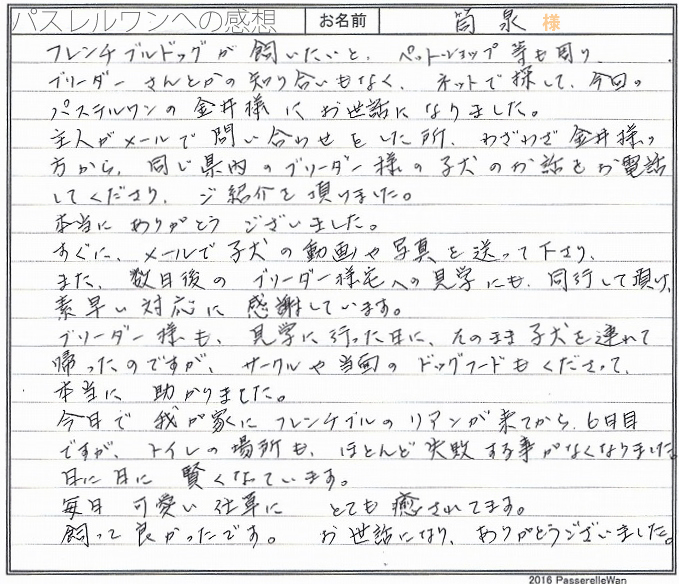 パスレルワンへの感想 お名前 筒泉 様
フレンチブルドッグが飼いたいと、ペットショップ等も周り、
ブリーダーさんとかの知り合いもなく、ネットで探して、今回の
パステルワンの金井様にお世話になりました。
主人がメールで問い合わせをした所、わざわざ金井様の
方から、同じ県内のブリーダー様の子犬のお話をお電話
してくださり、ご紹介を頂けました。
本当にありがとうございました。
すぐに、メールで子犬の動画や写真を送って下さり、
また、数日後のブリーダー様宅への見学にも、同行して頂け、
素早い対応に感謝しています。
ブリーダー様も、見学に行った日に、そのまま子犬を連れて
帰ったのですが、サークルや当面のドッグフードもくださって、
本当に助かりました。
今日で我が家にフレンチブルのリアンが来てから、6日目
ですが、トイレの場所も、ほとんど失敗する事がなくなりました。
日に日に賢くなっています。
毎日可愛い仕草にとても癒されてます。
飼って良かったです。お世話になり、ありがとうございました。
2016 PasserelleWan